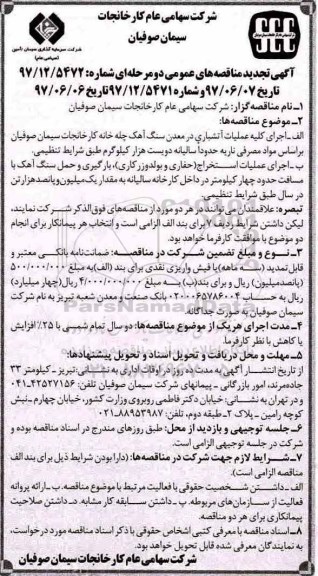 شرکت سهامی عام کارخانجات
سیمان صوفیان
SCC
شرکت سرمایه گذاری سیمان تأمین
(سهامی عام)
آگهی تجدید مناقصه‌های عمومی دو مرحله‌ای شماره: ۹۷/۱۲/۵۴۷۲
تاریخ ۹۷/۰۶/۰۷ و شماره ۹۷/۱۲/۵۴۷۱ تاریخ ۹۷/۰۶/۰۶
۱-نام مناقصه گزار: شرکت سهامی عام کارخانجات سیمان صوفیان
۲-موضوع مناقصه‌ها:
الف-اجرای کلیه عملیات آتشباری در معدن سنگ آهک چله خانه کارخانجات سیمان صوفیان
براساس مواد مصرفی ناریه حدودا سالیانه دویست هزار کیلوگرم طبق شرایط تنظیمی.
ب-اجرای عملیات استخراج (حفاری و بولدوزر کاری)، بارگیری و حمل سنگ آهک با
مسافت حدود چهار کیلومتر در داخل کارخانه سالیانه به مقدار یک میلیون و پانصد هزار تن
در سال طبق شرایط تنظیمی.
تبصره: علاقمندان می توانند در هر دو مورد از مناقصه‌های فوق الذکر شرکت نمایند،
لیکن داشتن شرایط ردیف ۷ برای بند الف الزامی است و انتخاب هر پیمانکار برای انجام
دو موضوع با موافقت کارفرما خواهد بود.
۳-نوع و مبلغ تضمین شرکت در مناقصه: ضمانت‌نامه بانکی معتبر و
قابل تمدید (سه ماهه) یا فیش واریزی نقدی برای بند (الف) به مبلغ ۵۰۰/۰۰۰/۰۰۰
(پانصد میلیون) ریال و برای بند (ب) به مبلغ ۴/۰۰۰/۰۰۰/۰۰۰ ریال (چهار میلیارد)
ریال به حساب ۰۲۰۰۰۶۵۷۸۶۰۰۴ بانک صنعت و معدن شعبه تبریز به نام شرکت
سیمان صوفیان به صورت جداگانه.
۴-مدت اجرای هریک از موضوع مناقصه‌ها: دو سال تمام شمسی با ۲۵٪ افزایش
یا کاهش با نظر کارفرما.
۵-مهلت و محل دریافت و تحویل اسناد و تحویل پیشنهادها:
از تاریخ انتشار آگهی به مدت ده روز در اوقات اداری به نشانی: تبریز - کیلومتر ۳۳
جاده مرند، امور بازرگانی - پیمانهای شرکت سیمان صوفیان تلفن: ۰۴۱-۴۲۵۲۷۱۵۶
و در تهران به نشانی: خیابان دکتر فاطمی روبروی وزارت کشور، خیابان چهارم - نبش
کوچه رامین - پلاک ۲ - طبقه دوم، تلفن: ۰۲۱-۸۸۹۵۳۹۸۷
۶-جلسه توجیهی و بازدید از محل: طبق روزهای مندرج در اسناد مناقصه بوده و
شرکت در جلسه توجیهی الزامی است.
۷-شرایط لازم جهت شرکت در مناقصه‌ها: (دارا بودن شرایط ذیل برای بند الف
مناقصه الزامی است).
الف-داشتن شخصیت حقوقی با فعالیت مرتبط با موضوع مناقصه. ب-ارائه پروانه
فعالیت از سازمان‌های مربوطه. پ-داشتن سابقه کار مشابه. د-داشتن صلاحیت
پیمانکاری برای هر دو مناقصه.
۸-اسناد مناقصه با معرفی کتبی اشخاص حقوقی با ذکر اسناد مناقصه مورد درخواست،
به نمایندگان معرفی شده قابل تحویل خواهد بود.
شرکت سهامی عام کارخانجات سیمان صوفیان